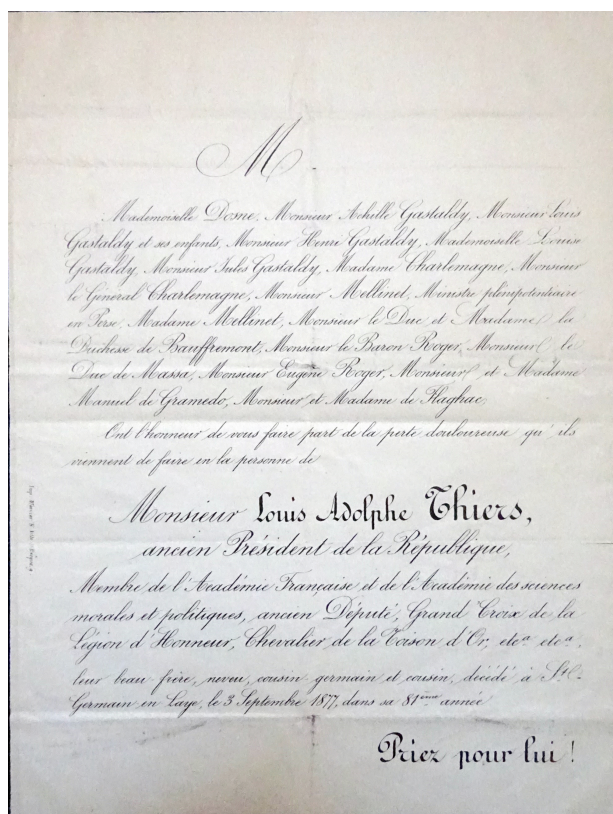 M
Mademoiselle Dosne, Monsieur Achille Gastaldy, Monsieur Louis
Gastaldy et ses enfants, Monsieur Henri Gastaldy, Mademoiselle Louise
Gastaldy, Monsieur Jules Gastaldy, Madame Charlemagne, Monsieur
le Général Charlemagne, Monsieur Mellinet, Ministre plénipotentiaire
en Perse, Madame Mellinet, Monsieur le Duc et Madame la
Duchesse de Bauffremont, Monsieur le Baron Roger, Monsieur le
Duc de Massa, Monsieur Eugène Roger, Monsieur et Madame
Manuel de Gramedo, Monsieur et Madame de Flaghac,
Ont l'honneur de vous faire part de la perte douloureuse qu'ils
viennent de faire en la personne de
Monsieur Louis Adolphe Thiers,
ancien Président de la République,
Membre de l'Académie Française et de l'Académie des sciences
morales et politiques, ancien Député, Grand Croix de la
Légion d'Honneur, Chevalier de la Toison d'Or, etc.ª etc.ª,
leur beau frère, neveu, cousin germain et cousin, décédé à St.
Germain en Laye, le 3 Septembre 1877, dans sa 81ème année
Priez pour lui !